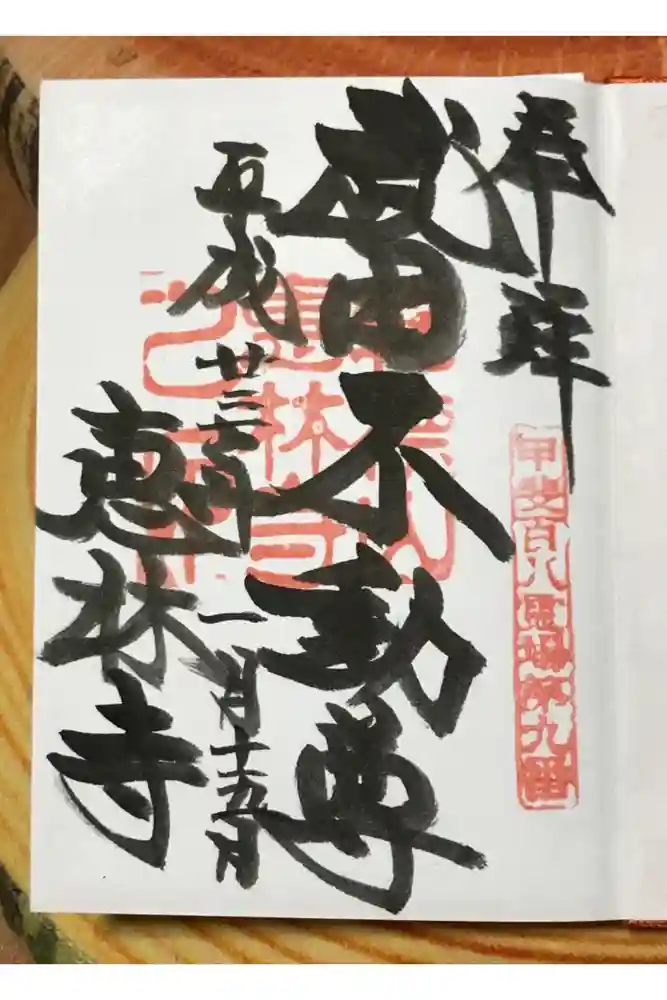 奉拝
甲斐百八霊場第九番
武田不動尊
平成廿三年一月十五日
恵林寺